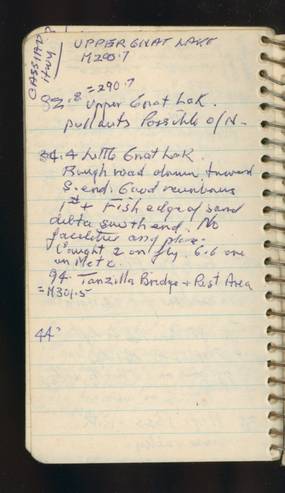 CASSIAR
Hwy
UPPER GNAT LAKE
M290.7
82.8 = 290.7
Upper Gnat Lak.
pullouts Possible o/N-
84.4 Little Gnat Lak.
Rough road down toward
S. end. Good rainbows
1st Fish edge of sand
delta south end. No
facilities any place.
Caught 2 on fly. 6.6 one
on Meta.
94 Tanzilla Bridge + Rest Area
=M301.5
44